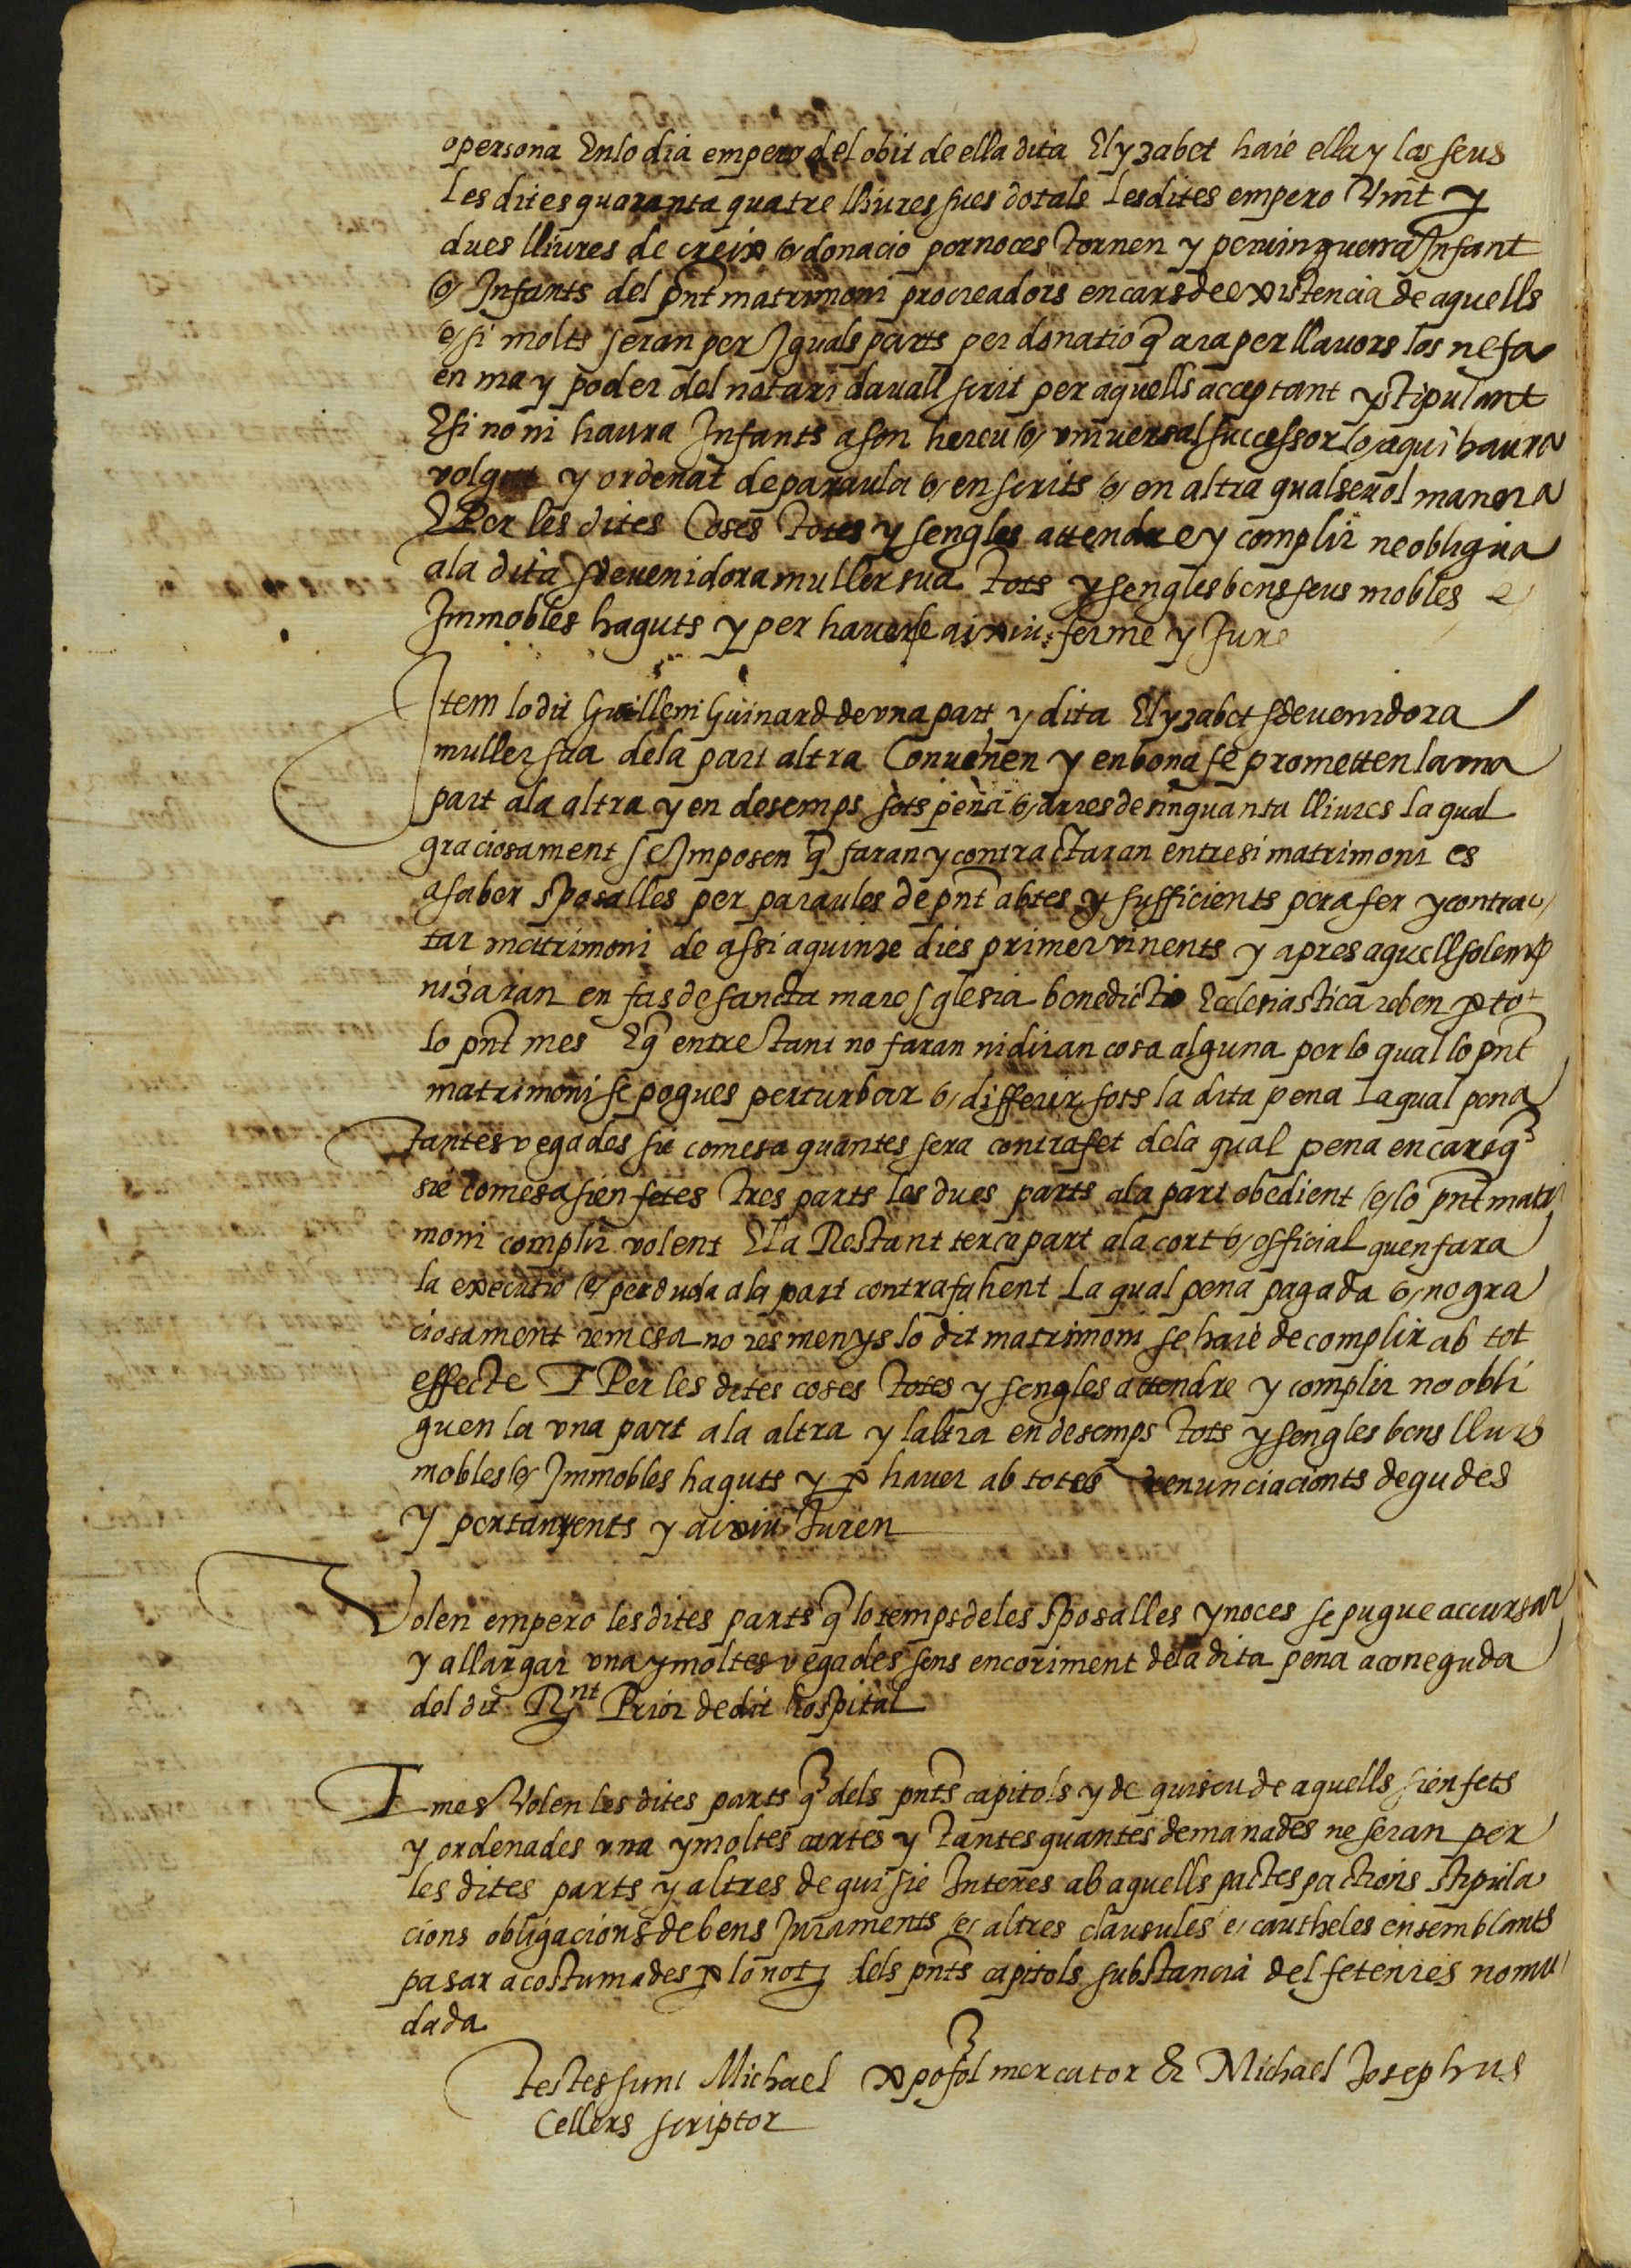 o persona En lo dia empero del obit de ella dita Elyzabet haie ella y los seus
les dites quaranta quatre lliures sues dotals les dites empero vint y
dues lliures de creix o donacio per noces tornen y pervinguen a Infant
o Infants del pnt matrimoni procreadors en cars de existencia de aquells
e si molts seran per Iguals parts per donatio q̃ ara per llavors los ne fa
en ma y poder del notari davall scrit per aquells acceptant y stipulant
E si no ni haura Infants a son hereu o universal successor o a qui haura
volgut y ordenat de paraula o en scrits o en altra qualsevol manera
E Per les dites Coses totes y sengles attendre y complir ne obligua
a la dita sdevenidora muller sua tots y sengles bens seus mobles e
Immobles haguts y per haver e aixiu ferme y Jure
Item lo dit Guillem Guinard de una part y dita Elyzabet sdevenidora
muller sua de la part altra Convenen y en bona fe prometten la una
part a la altra y en desemps sots pena o arres de sinquanta lliures la qual
graciosament se Imposen q̃ faran y contractaran entre si matrimoni es
a saber sposalles per paraules de pnt abtes y sufficients pera fer y contrac
tar matrimoni de assi a quinze dies primer vinents y apres aquell solemp
nizaran en fas de sancta mare sglesia benedictio Ecclesiastica reben p tot
lo pnt mes E q̃ entre tant no faran ni diran cosa alguna per lo qual lo pnt
matrimoni se pogues perturbar o differir sots la dita pena la qual pena
tantes vegades sie comesa quantes sera contrafet de la qual pena en cars q̃
sie comesa sien fetes tres parts les dues parts a la part obedient e lo pnt matri
moni complir volent E la Restant terca part a la cort o official quen fara
la executio e perduda a la part contrafahent la qual pena pagada o no gra
ciosament remesa no res menys lo dit matrimoni se haie de complir ab tot
effecte I Per les dites coses totes y sengles attendre y complir ne obli
guen la una part a la altra y laltra en desemps tots y sengles bens llurs
mobles e Immobles haguts y p haver ab totes renunciacionts degudes
y pertanyents y aixiu Juren
Volen empero les dites parts q̃ lo temps de les sposalles y noces se pugue accursar
y allargar una y moltes vegades sens encorriment de la dita pena a coneguda
del dit Rnt Prior de dit hospital
I mes Volen les dites parts q̃ dels pnts capitols y de quiscu de aquells sien fets
y ordenades una y moltes cartes y tantes quantes demanades ne seran per
les dites parts y altres de qui sie Interes ab aquells pactes pactions stipula
cions obligacions de bens Juraments e altres clausules e cautheles en semblants
pasar acostumades p lo not dels pnts capitols substancia del fet en res no mu
dada
Testes sunt Michael xpofol mercator & Michael Josephus
Cellers scriptor